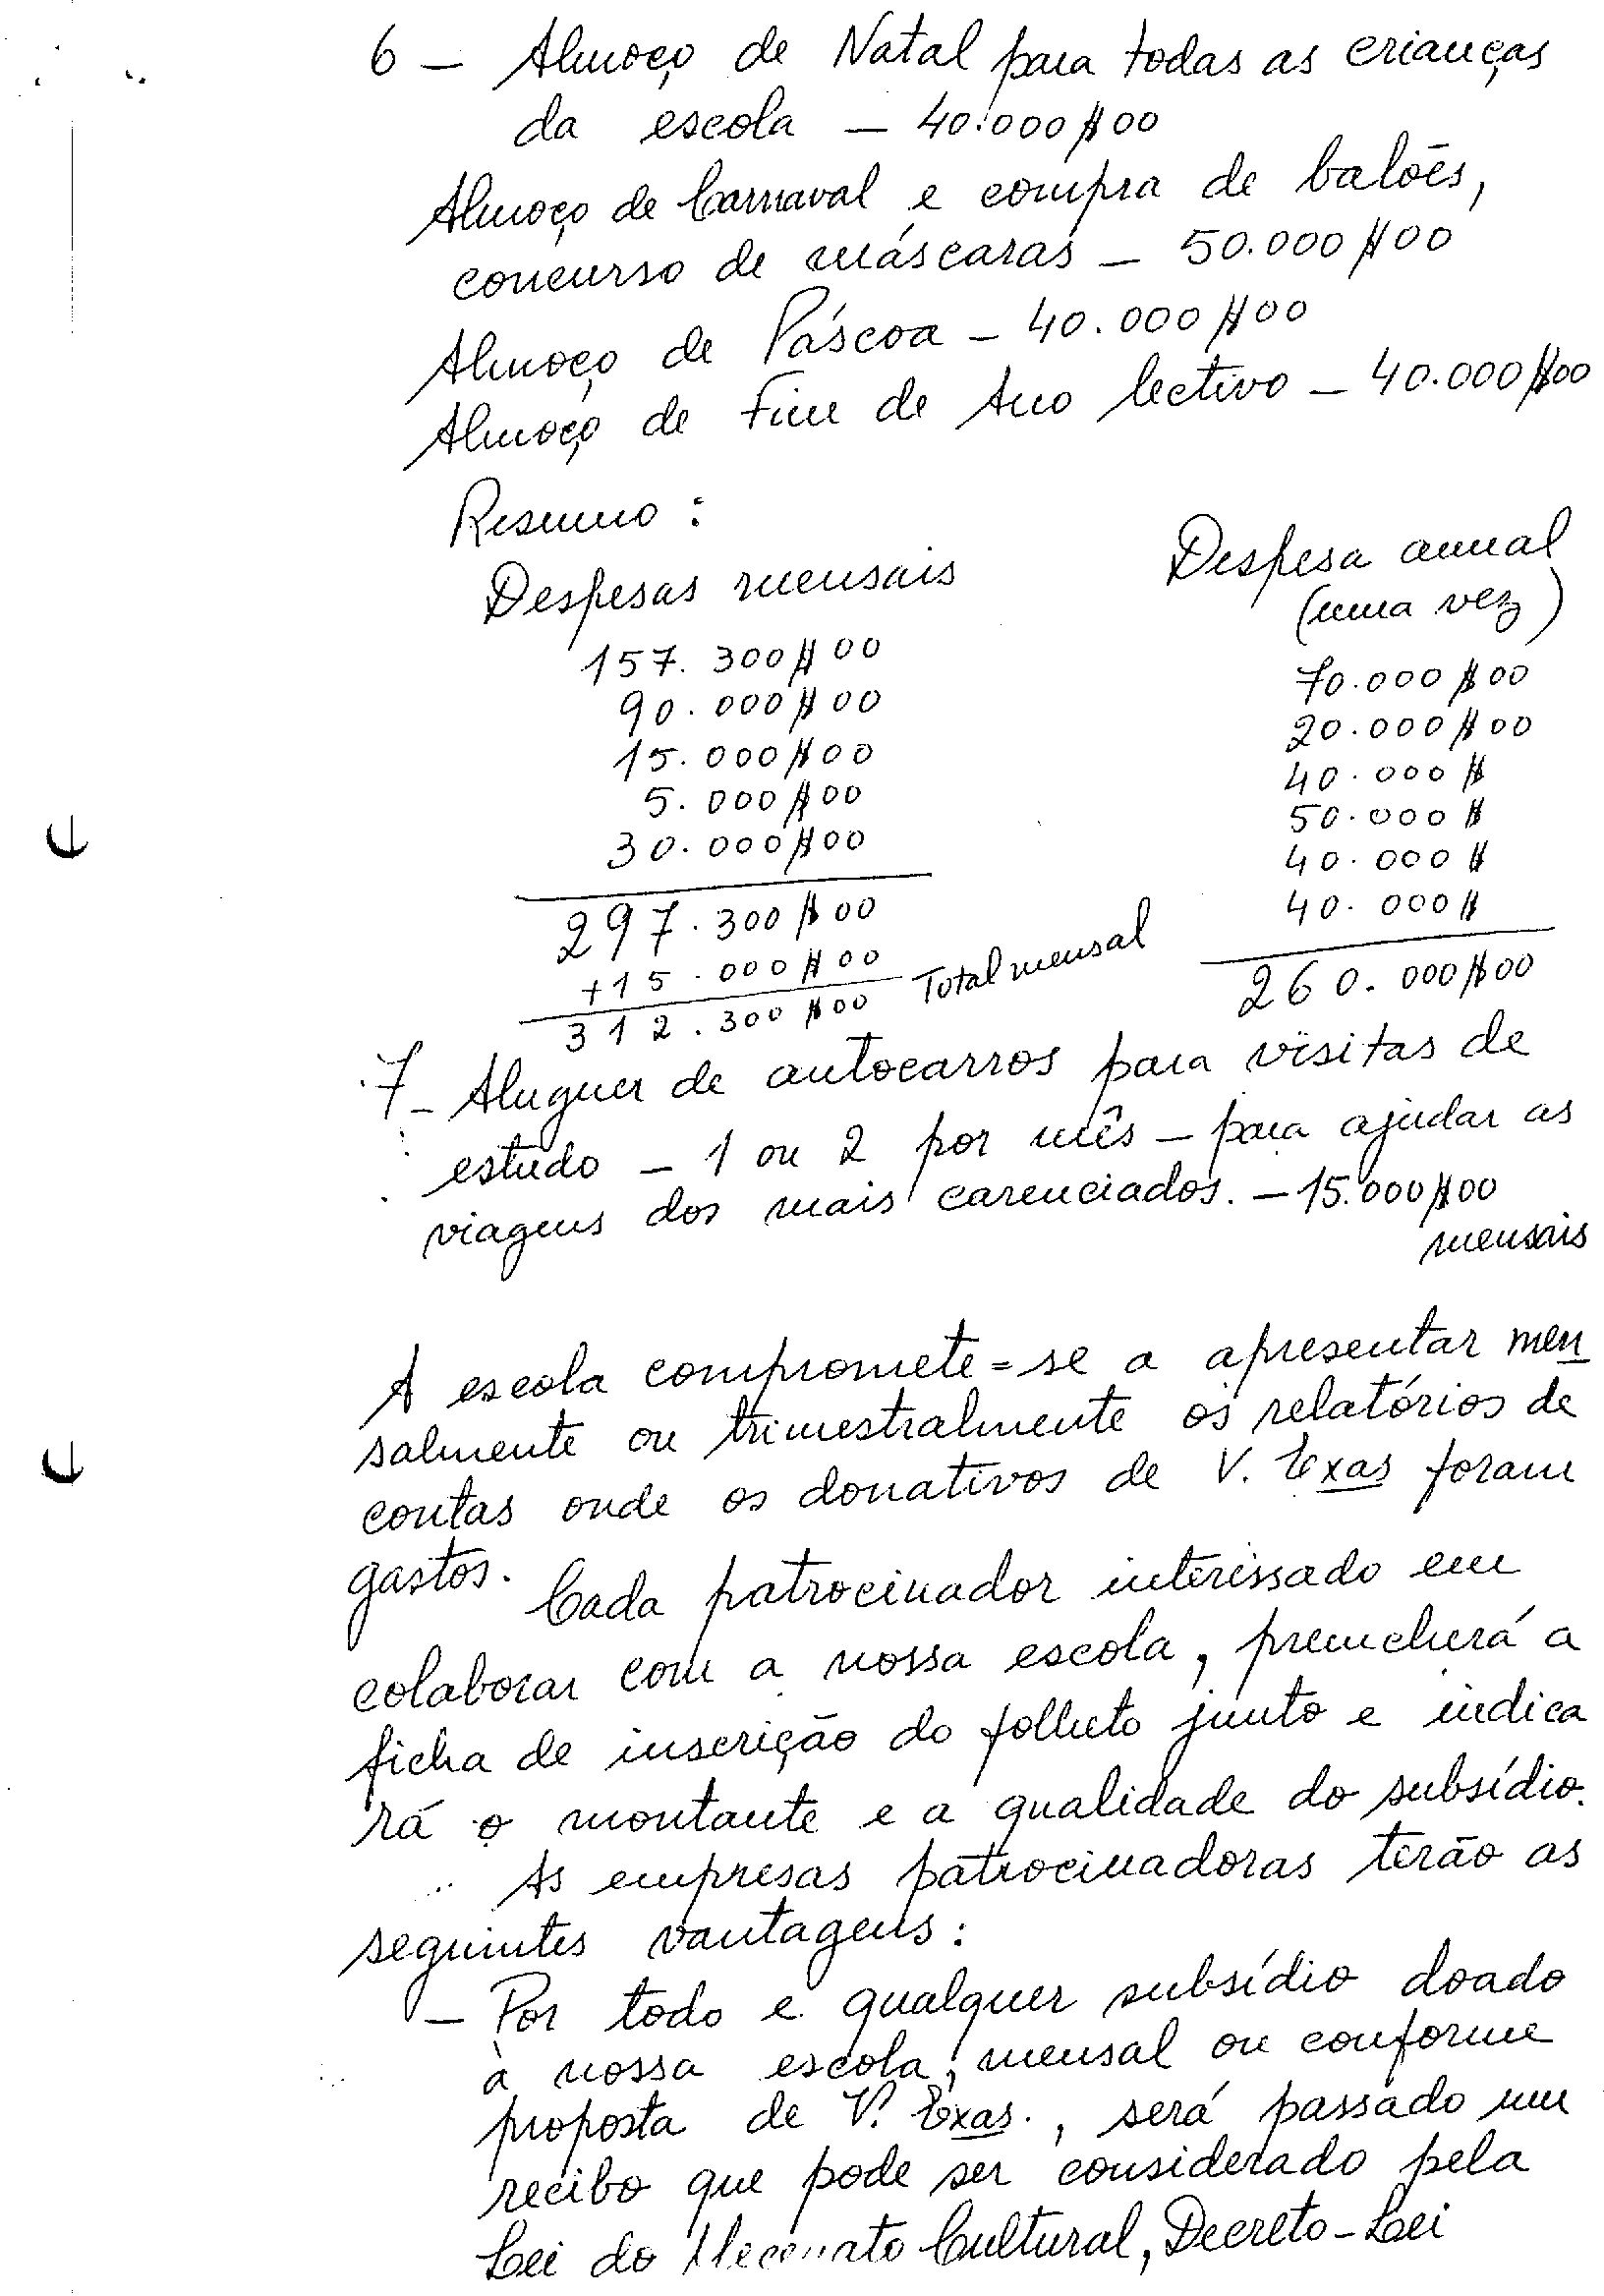 6 — Almoço de Natal para todas as crianças
da escola — 40.000$00
Almoço de Carnaval e compra de balões,
concurso de máscaras — 50.000$00
Almoço de Páscoa — 40.000$00
Almoço de Fim de Ano lectivo — 40.000$00
Resumo :
Despesas mensais
157.300$00
90.000$00
15.000$00
5.000$00
30.000$00
297.300$00
+15.000$00
312.300$00 Total mensal
Despesa anual
(uma vez)
70.000$00
20.000$00
40.000$
50.000$
40.000$
40.000$
260.000$00
7 — Aluguer de autocarros para visitas de
estudo — 1 ou 2 por mês — para ajudar as
viagens dos mais carenciados. — 15.000$00
mensais
A escola compromete=se a apresentar men
salmente ou trimestralmente os relatórios de
contas onde os donativos de V. Exas foram
gastos.
Cada patrocinador interessado em
colaborar com a nossa escola, preencherá a
ficha de inscrição do folheto junto e indica
rá o montante e a qualidade do subsídio.
As empresas patrocinadoras terão as
seguintes vantagens :
— Por todo e qualquer subsídio doado
à nossa escola, mensal ou conforme
proposta de V. Exas., será passado um
recibo que pode ser considerado pela
Lei do Mecenato Cultural, Decreto-Lei